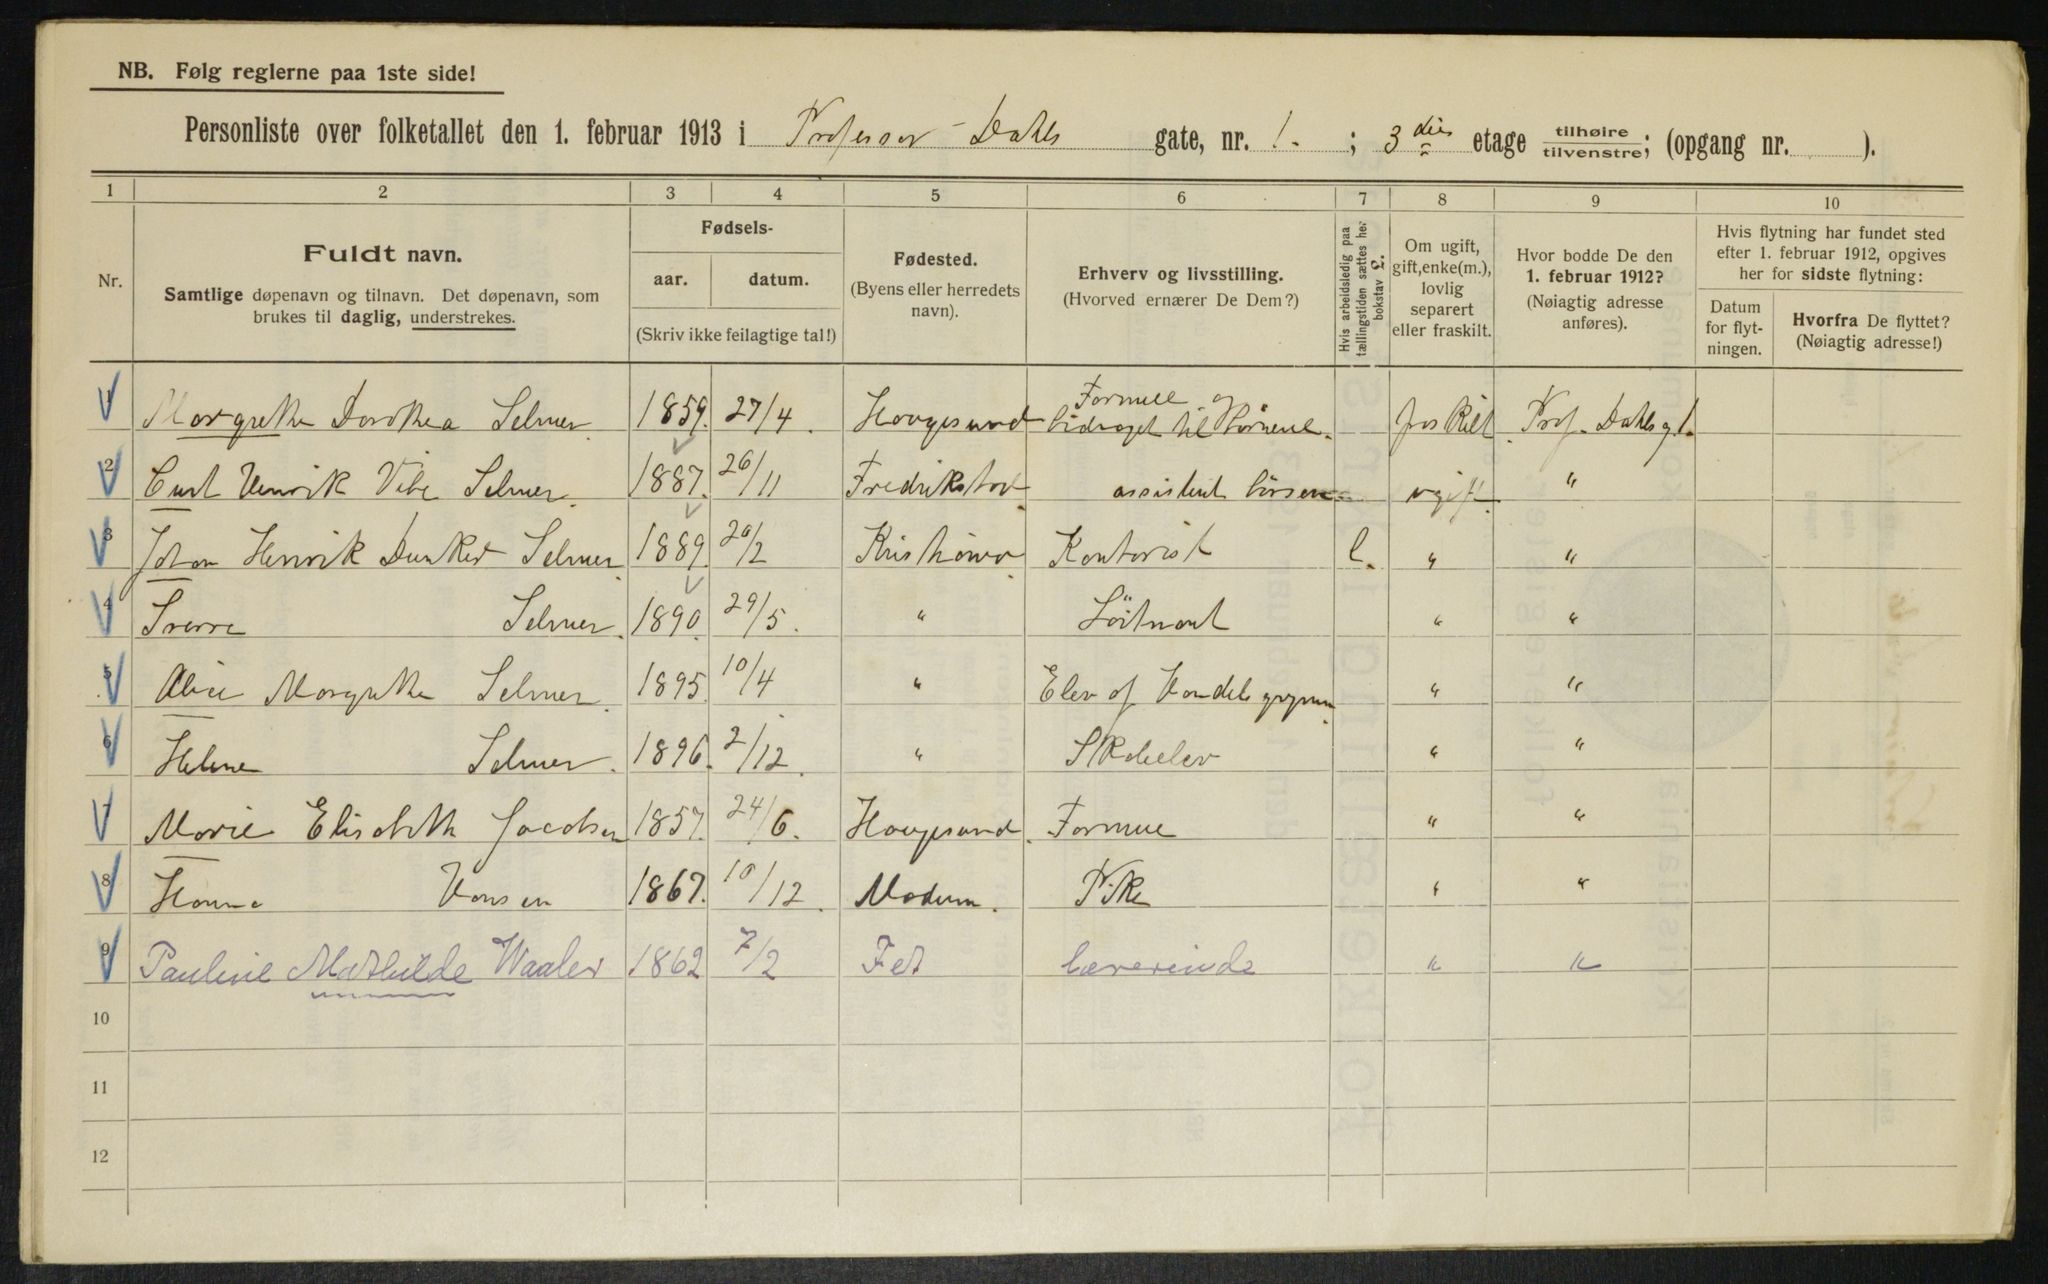 NB. Følg reglerne paa 1ste side!
Personliste over folketallet den 1. februar 1913 i Professor Dahls gate, nr. 1. ; 3 die etage tilhøire / tilvenstre; (opgang nr. ).
1 2 3 4 5 6 7 8 9 10
Nr.
Fuldt navn.
Samtlige døpenavn og tilnavn. Det døpenavn, som
brukes til daglig, understrekes.
Fødsels-
aar. datum.
(Skriv ikke feilagtige tal!)
Fødested.
(Byens eller herredets
navn).
Erhverv og livsstilling.
(Hvorved ernærer De Dem?)
Hvis arbeidsledig paa
tællingstiden sættes her
bokstav L.
Om ugift,
gift, enke(m.),
lovlig
separert
eller fraskilt.
Hvor bodde De den
1. februar 1912?
(Nøiagtig adresse
anføres).
Hvis flytning har fundet sted
efter 1. februar 1912, opgives
her for sidste flytning:
Datum
for flyt-
ningen.
Hvorfra De flyttet?
(Nøiagtig adresse!)
1 Margrethe Dorothea Selmer 1859. 27/4. Haugesund Formue og bidraget til børnene. fraskilt Prof. Dahlsg. 1.
2 Curt Henrik Vibe Selmer. 1887. 26/11 Fredrikstad. assistent børsen ugift. "
3 Johan Henrik Dunker Selmer. 1889. 26/2 Kristiania. Kontorist l. " "
4 Sverre Selmer. 1890. 29/5. " Löitnant " "
5 Alice Margrethe Selmer. 1895. 10/4 " Elev af Handelsgymn. " "
6 Helene Selmer. 1896. 2/12. " Skoleelev " "
7 Marie Elisabeth Jacobsen 1857. 24/6. Haugesund. Formue " "
8 Hanna Hansen 1867. 10/12. Modum. Pike " "
9 Pauline Mathilde Waaler 1862 7/2 Fet lærerinde " "
10
11
12